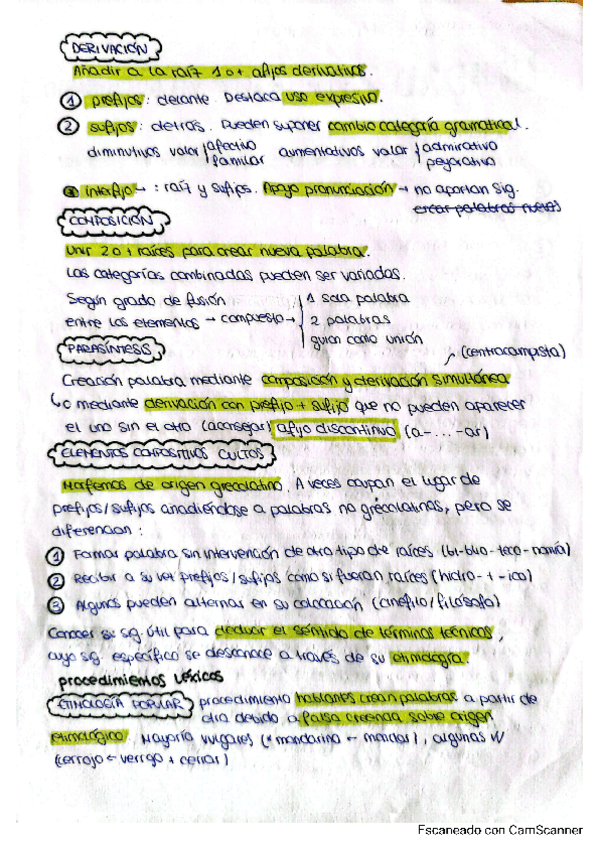 DERIVACIÓN
Añadir a la raíz 1 o + afijos derivativos.
① prefijos: delante. Destaca uso expresivo.
② sufijos: detrás. Pueden suponer cambio categoría gramatical.
diminutivos valor afectivo familiar aumentativos valor admirativo peyorativo
interfijo → : raíz y sufijos. Apoyo pronunciación → no aportan sig.
crear palabras nuevas
COMPOSICIÓN
Unir 2 o + raíces para crear nueva palabra.
Las categorías combinadas pueden ser variadas.
Según grado de fusión 1 sola palabra
entre los elementos → compuesto → 2 palabras
guion como unión
PARASÍNTESIS (centrocampista)
Creación palabra mediante composición y derivación simultánea
↳ o mediante derivación con prefijo + sufijo que no pueden aparecer
el uno sin el otro (aconsejar) afijo discontinuo (a-... -ar)
ELEMENTOS COMPOSITIVOS CULTOS
Morfemas de origen grecolatino. A veces ocupan el lugar de
prefijos/sufijos añadiéndose a palabras no grecolatinas, pero se
diferencian:
① Formar palabra sin intervención de otro tipo de raíces (bi-blio-teco-nomía)
② Recibir a su vez prefijos/sufijos como si fueran raíces (hidro-t-ico)
③ Algunos pueden alternar en su colocación (cinéfilo/filósofo)
Conocer su sg. útil para deducir el sentido de términos técnicos,
cuyo sg. específico se desconoce a través de su etimología.
procedimientos léxicos
ETIMOLOGÍA POPULAR procedimiento hablantes crean palabras a partir de
otra debido a falsa creencia sobre origen
etimológico. Mayoría vulgares (*mondarina ← mondar), algunas
(cerrojo ← verrojo + cerrar)
Escaneado con CamScanner